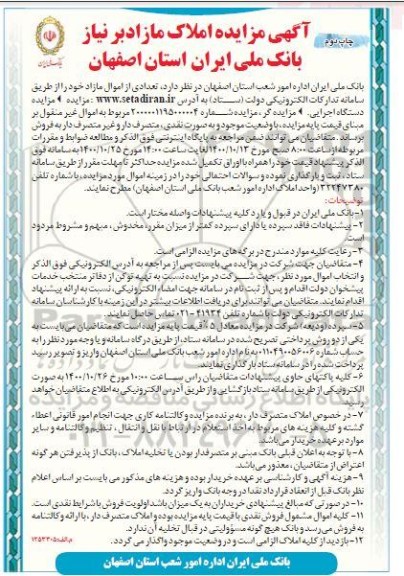 چاپ دوم
آگهی مزایده املاک مازاد بر نیاز
بانک ملی ایران استان اصفهان
بانک ملی ایران اداره امور شعب استان اصفهان در نظر دارد، تعدادی از اموال مازاد خود را از طریق
سامانه تدارکات الکترونیکی دولت (ستاد) به آدرس www.setadiran.ir مزایده
دستگاه اجرایی، مزایده گر، مزایده شماره ۲۰۰۰۰۰۱۱۹۵۰۰۰۰۰۴ مربوط به اموال غیر منقول بر
مبنای قیمت پایه مزایده، با وضعیت موجود و به صورت نقدی، متصرف دار و غیر متصرف دار به فروش
برساند. متقاضیان می توانند ضمن مراجعه به پایگاه اینترنتی فوق الذکر و مطالعه ضوابط و مقررات
مربوطه از ساعت ۸:۰۰ صبح مورخ ۱۴۰۰/۱۰/۱۳ لغایت ساعت ۱۴:۰۰ مورخ ۱۴۰۰/۱۰/۲۵ به سامانه فوق
الذکر و پیشنهاد قیمت خود را همراه با اوراق تکمیل شده مزایده حداکثر تا مهلت مقرر از طریق سامانه
ستاد، ثبت و بارگذاری نموده و سوالات احتمالی خود را در زمینه اموال مورد مزایده، با شماره تلفن
۳۲۲۴۷۳۸۰ (واحد املاک اداره امور شعب بانک ملی استان اصفهان) مطرح نمایند.
توضیحات:
۱- بانک ملی ایران در قبول و یا رد کلیه پیشنهادات واصله مختار است.
۲- پیشنهادات فاقد سپرده یا دارای سپرده کمتر از میزان مقرر، مخدوش، مبهم و مشروط مردود
است.
۳- رعایت کلیه موارد مندرج در برگه های مزایده الزامی است.
۴- متقاضیان جهت شرکت در مزایده می بایست پس از مراجعه به آدرس الکترونیکی فوق الذکر
و انتخاب اموال مورد نظر، جهت شرکت در مزایده نسبت به تهیه توکن از دفاتر منتخب خدمات
پیشخوان دولت اقدام و پس از ثبت نام در سامانه جهت امضاء الکترونیکی، نسبت به ارائه پیشنهاد
اقدام نمایند. متقاضیان می توانند برای دریافت اطلاعات بیشتر در این زمینه با کارشناسان سامانه
تدارکات الکترونیکی دولت با شماره تلفن ۴۱۹۳۴-۰۲۱ تماس حاصل نمایند.
۵- سپرده (ودیعه) شرکت در مزایده معادل ۵٪ قیمت پایه مزایده است که متقاضیان می بایست به
یکی از دو روش پرداختی تصریح شده در سامانه ستاد، از طریق درگاه سامانه و یا وجه مورد نظر را به
حساب شماره ۰۱۱۰۴۹۰۰۵۶۰۰۶ به نام اداره امور شعب بانک ملی استان اصفهان واریز و تصویر رسید
پرداخت شده را در سامانه ستاد بارگذاری نمایند.
۶- کلیه پاکتهای حاوی پیشنهادات متقاضیان راس ساعت ۱۰:۰۰ مورخ ۱۴۰۰/۱۰/۲۶ به صورت
الکترونیکی از طریق سامانه ستاد بازگشایی و از طریق آدرس الکترونیکی به اطلاع متقاضیان خواهد
رسید.
۷- در خصوص املاک متصرف دار، به برنده مزایده وکالتنامه کاری جهت انجام امور قانونی اعطاء
گشته و کلیه هزینه های مربوط به اخذ استعلام در ارتباط با نقل و انتقال، تنظیم وکالتنامه و سایر
موارد بر عهده خریدار می باشد.
۸- با توجه به اعلان قبلی بانک مبنی بر متصرفدار بودن یا تخلیه املاک، بانک از پذیرفتن هر گونه
اعتراض از متقاضیان، معذور می باشد.
۹- هزینه آگهی و کارشناسی بر عهده خریدار بوده و هزینه های مذکور می بایست بر اساس اعلام
نظر بانک قبل از انعقاد قرارداد نقدا در وجه بانک واریز گردد.
۱۰- در صورتی که مبالغ پیشنهادی خریداران به یک میزان باشد اولویت فروش با شرایط نقدی است.
۱۱- کلیه اموال مشمول فروش نقدی با قیمت پایه مزایده بوده و املاک متصرف دار، با ارائه وکالتنامه
به فروش می رسد و بانک هیچ گونه مسؤولیتی در قبال تخلیه آن ندارد.
۱۲- بازدید از کلیه املاک الزامی است و در وضعیت موجود واگذار می گردد.
م الف: ۱۲۵۳۳۰۵
بانک ملی ایران اداره امور شعب استان اصفهان